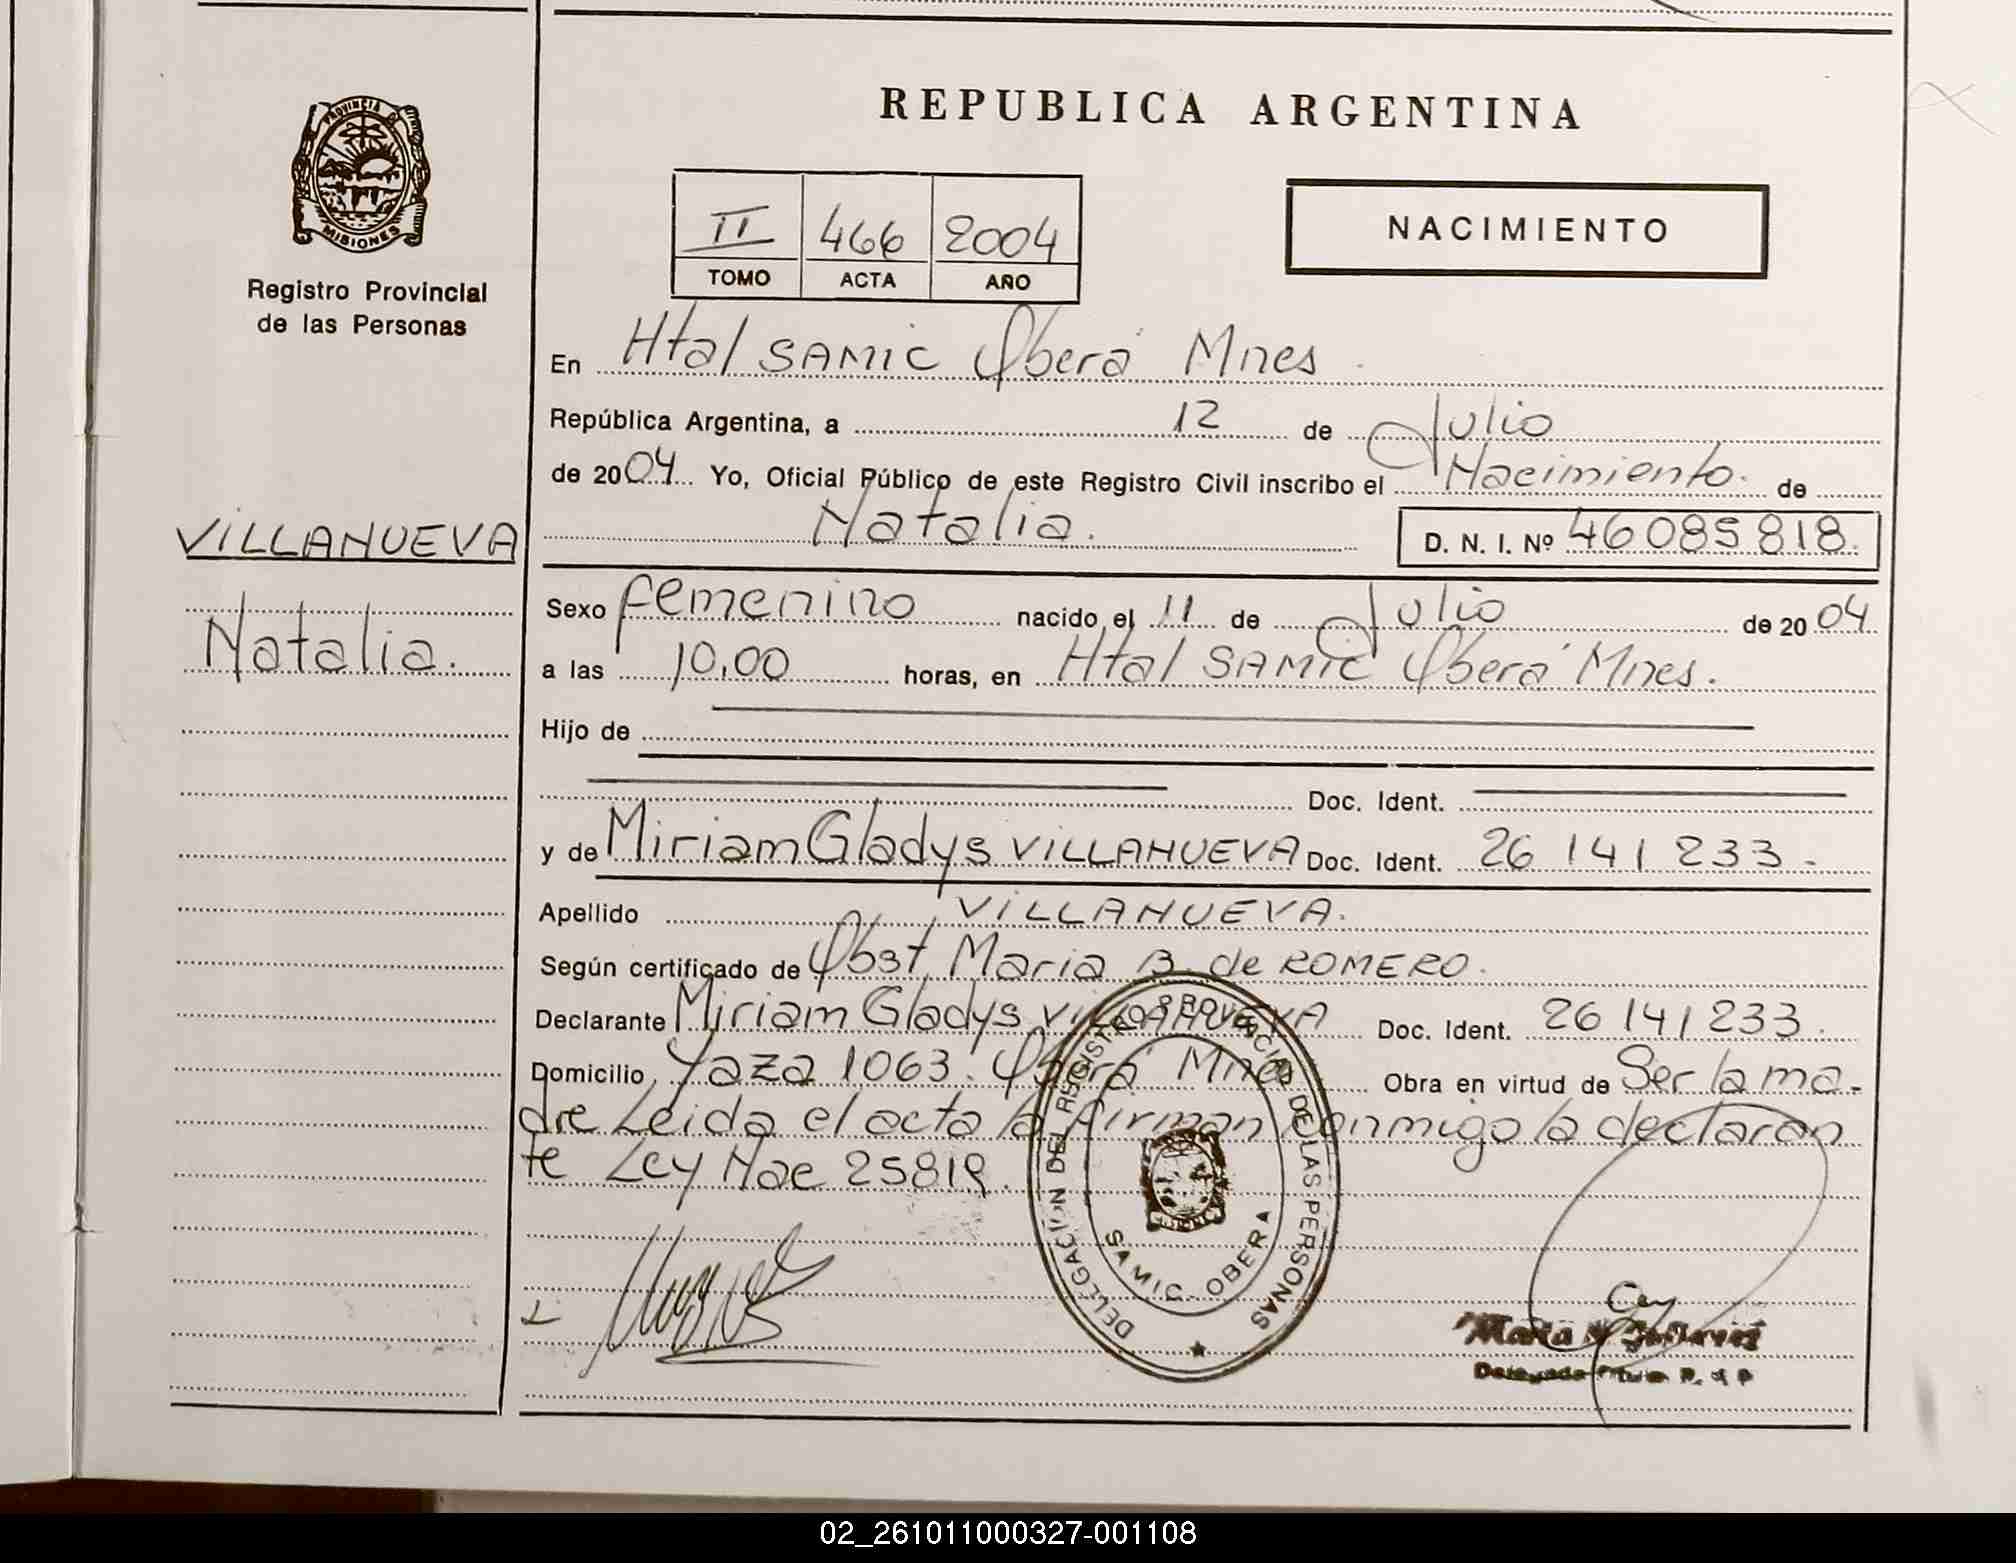 REPUBLICA ARGENTINA
PROVINCIA DE MISIONES
Registro Provincial
de las Personas
II 466 2004
TOMO ACTA AÑO
NACIMIENTO
En Htal SAMIC Oberá Mnes
República Argentina, a 12 de Julio
de 2004. Yo, Oficial Público de este Registro Civil inscribo el Nacimiento. de
Natalia. D. N. I. Nº 46085818.
VILLANUEVA
Natalia.
Sexo femenino nacido el 11 de Julio de 2004
a las 10,00 horas, en Htal SAMIC Oberá Mnes.
Hijo de
Doc. Ident.
y de Miriam Gladys VILLANUEVA Doc. Ident. 26 141 233.
Apellido VILLANUEVA.
Según certificado de Obst, Maria B. de ROMERO.
Declarante Miriam Gladys VILLANUEVA Doc. Ident. 26 141 233.
Domicilio Yaza 1063. Oberá Mnes Obra en virtud de Ser la ma-
dre Leida el acta la firman conmigo la declaran
te Ley Nac 25819.
DELEGACION DEL REGISTRO PROVINCIAL DE LAS PERSONAS
SAMIC - OBERA
02_261011000327-001108